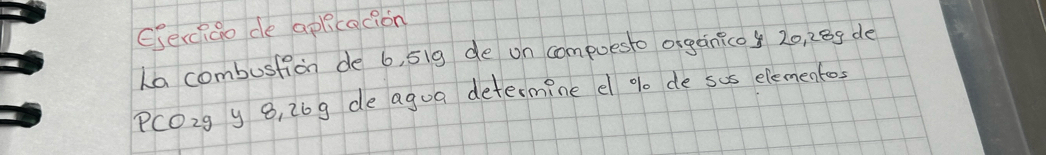 Ejercicio de aplicación
La combustión de 6,51g de un compuesto orgánico y 20,28g de
PCO2g y 8,26g de agua determine el % de sus elementos